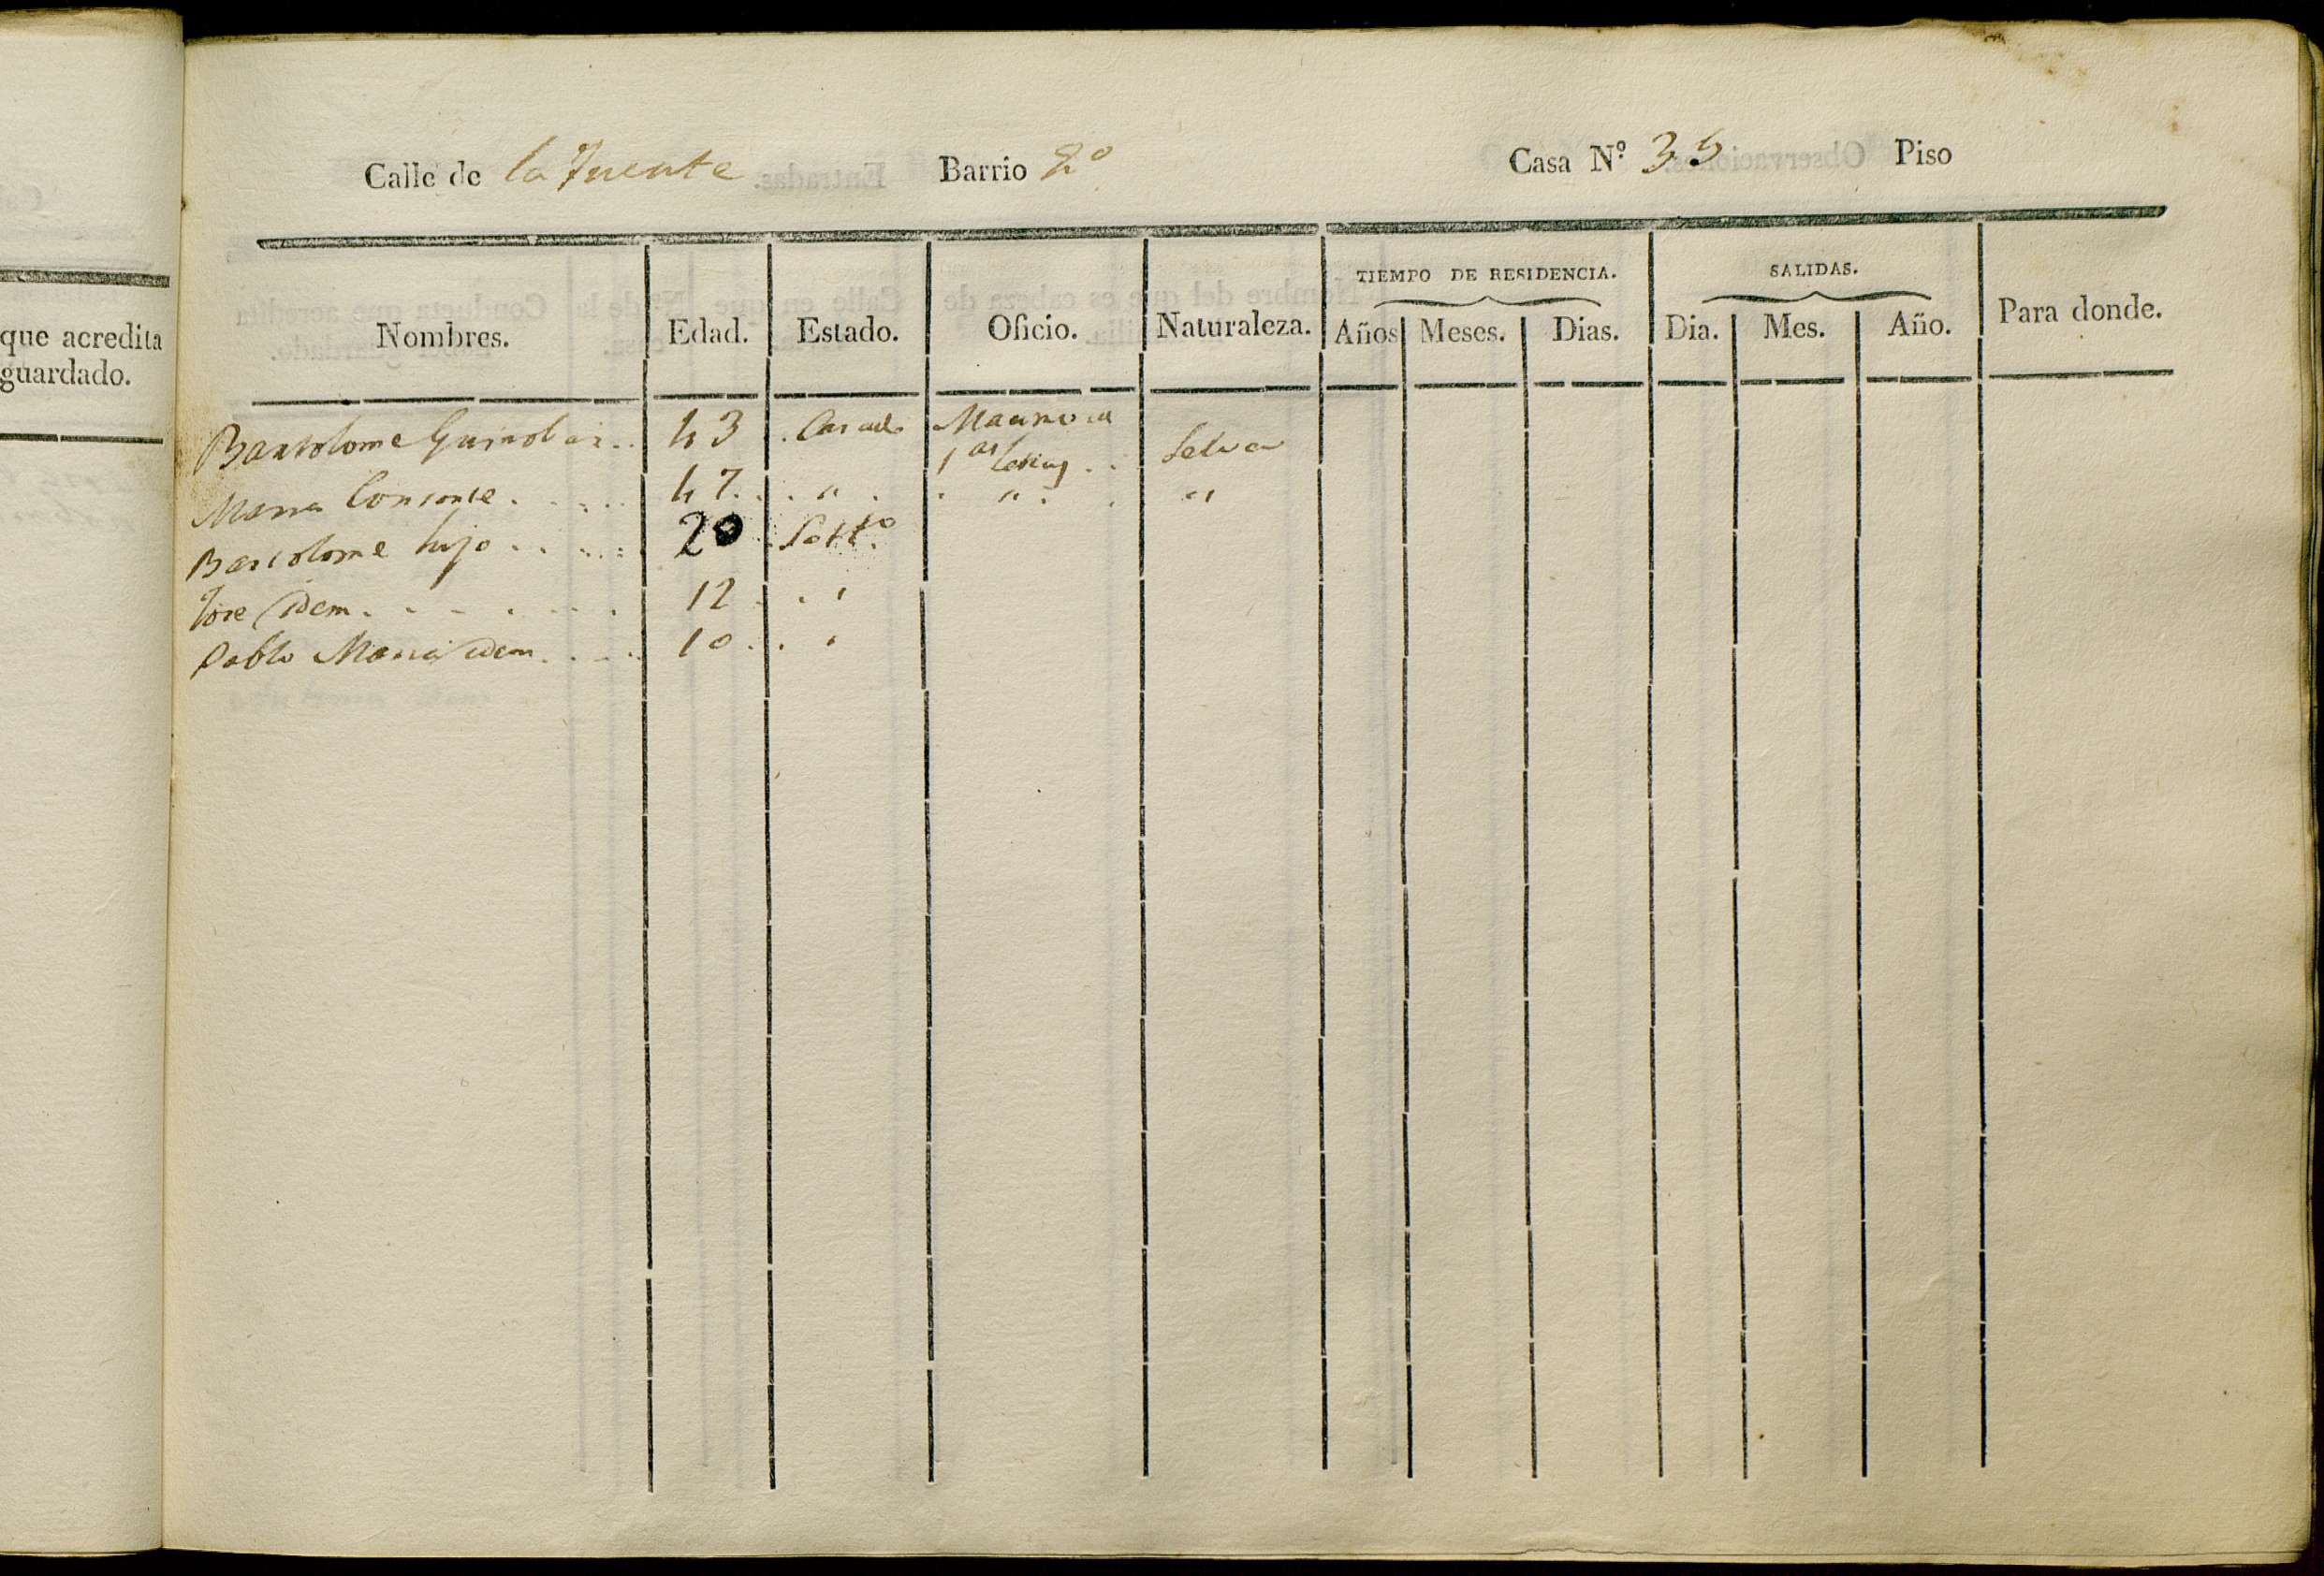 que acredita
guardado.
Calle de la Fuente Barrio 2º Casa Nº. 35 Piso
Nombres. Edad. Estado. Oficio. Naturaleza. TIEMPO DE RESIDENCIA. SALIDAS. Para donde.
Años Meses. Dias. Dia. Mes. Año.
Bartolome 43 Casado Maestro
1as letras Selva
Maria Consorte 47 " " "
Bartolome hijo 20 Solt.o
Jose idem 12 "
Pablo Maria idem 10 "